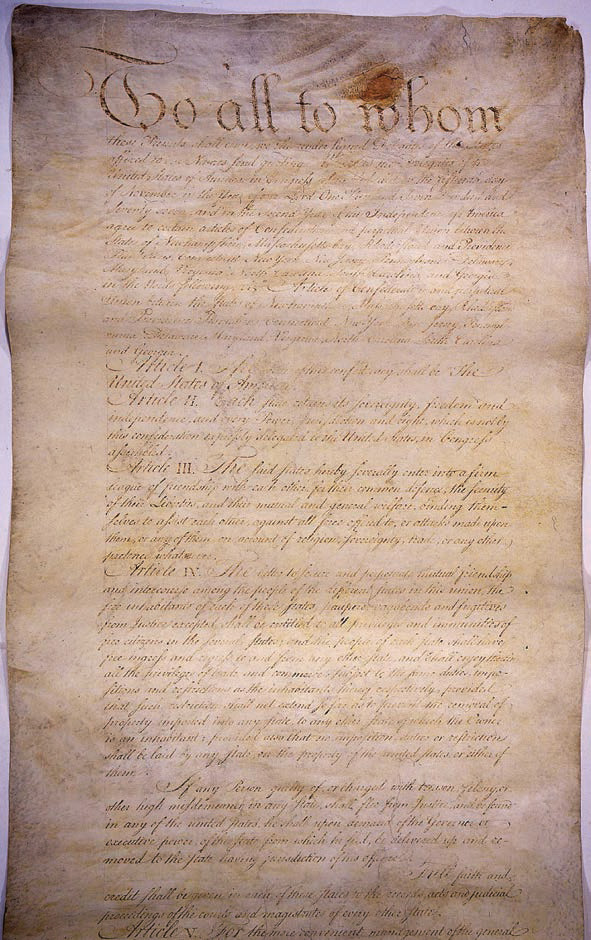 To all to whom
these Presents shall come, we the under signed Delegates of the States
affixed to our Names send greeting. Whereas the Delegates of the
United States of America in Congress assembled did on the fifteenth day
of November in the Year of our Lord One Thousand Seven Hundred and
Seventy seven, and in the Second Year of the Independence of America
agree to certain articles of Confederation and perpetual Union between the
States of Newhampshire, Massachusetts-bay, Rhodeisland and Providence
Plantations, Connecticut, New York, New Jersey, Pennsylvania, Delaware,
Maryland, Virginia, North-Carolina, South-Carolina, and Georgia
in the Words following, viz. Articles of Confederation and perpetual
Union between the States of Newhampshire, Massachusetts-bay, Rhodeisland
and Providence Plantations, Connecticut, New York, New Jersey, Pennsyl-
vania, Delaware, Maryland, Virginia, North-Carolina, South-Carolina
and Georgia.
Article I. The Stile of this confederacy shall be "The
United States of America."
Article II. Each state retains its sovereignty, freedom and
independence, and every Power, Jurisdiction and right, which is not by
this confederation expressly delegated to the United States, in Congress
assembled.
Article III. The said states hereby severally enter into a firm
league of friendship with each other, for their common defence, the security
of their Liberties, and their mutual and general welfare, binding them-
selves to assist each other, against all force offered to, or attacks made upon
them, or any of them, on account of religion, sovereignty, trade, or any other
pretence whatever.
Article IV. The better to secure and perpetuate mutual friendship
and intercourse among the people of the different states in this union, the
free inhabitants of each of these states, paupers, vagabonds and fugitives
from Justice excepted, shall be entitled to all privileges and immunities of
free citizens in the several states; and the people of each state shall have
free ingress and regress to and from any other state, and shall enjoy therein
all the privileges of trade and commerce, subject to the same duties, impo-
sitions and restrictions as the inhabitants thereof respectively, provided
that such restriction shall not extend so far as to prevent the removal of
property imported into any state, to any other state, of which the Owner
is an inhabitant; provided also that no imposition, duties or restriction
shall be laid by any state, on the property of the united states, or either of
them.
If any Person guilty of, or charged with treason, felony, or
other high misdemeanor in any state, shall flee from Justice, and be found
in any of the united states, he shall, upon demand of the Governor or
executive power, of the state from which he fled, be delivered up and re-
moved to the state having jurisdiction of his offence.
Full faith and
credit shall be given in each of these states to the records, acts and judicial
proceedings of the courts and magistrates of every other state.
Article V. For the more convenient management of the general